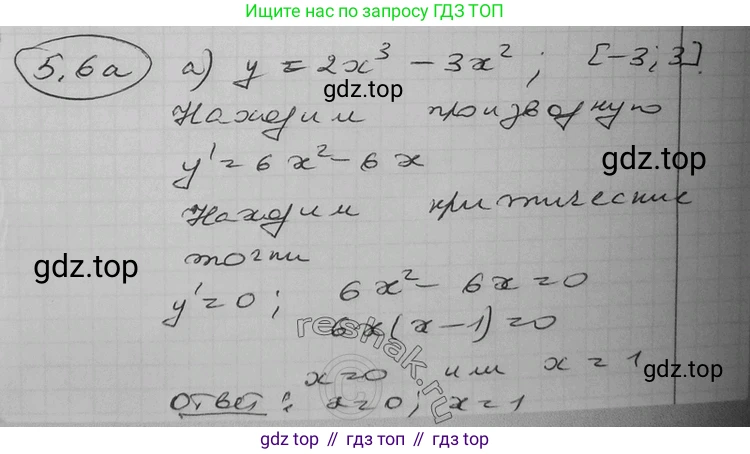 Ищите нас по запросу ГДЗ ТОП
5,6а а) y = 2x³ - 3x² ; [-3; 3].
gdz.top
Находим производную
y' = 6x² - 6x
gdz.top
Находим критические
gdz.top
точки
y' = 0 ; 6x² - 6x = 0
6x(x - 1) = 0
reshak.ru
x = 0 или x = 1
gdz.top
Ответ: x = 0; x = 1
gdz.top
gdz.top // гдз.топ // gdz.top // гдз.топ // gdz.top